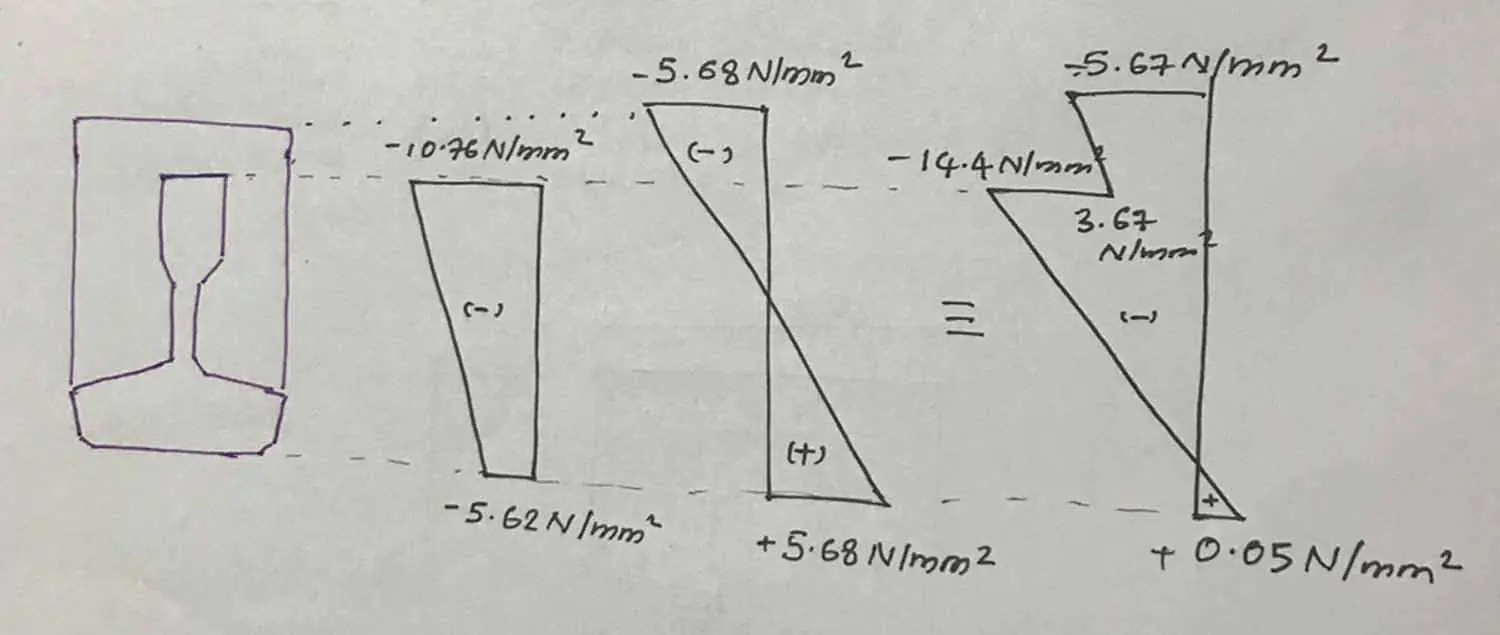 -5.68 N/mm²
-5.67 N/mm²
-10.76 N/mm²
(-)
-14.4 N/mm²
3.67
N/mm²
(-)
≡
(-)
(+)
+
-5.62 N/mm²
+5.68 N/mm²
+ 0.05 N/mm²